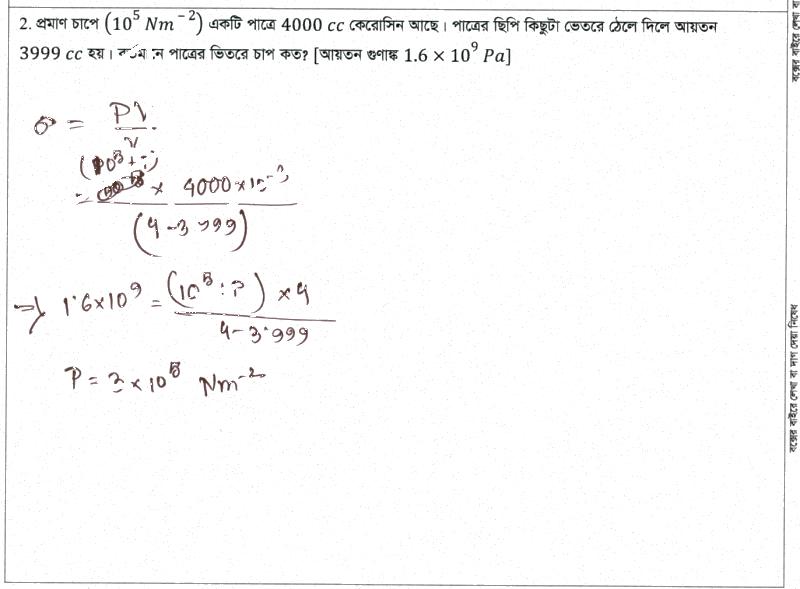 2. প্রমাণ চাপে (10⁵ Nm⁻²) একটি পাত্রে 4000 cc কেরোসিন আছে। পাত্রের ছিপি কিছুটা ভেতরে ঠেলে দিলে আয়তন
3999 cc হয়। পাত্রের ভিতরে চাপ কত? [আয়তন গুণাঙ্ক 1.6 × 10⁹ Pa]
= PV / v
4000 × 10⁻³
(4-3.999)
=> 1.6×10⁹ = (10⁵ + P) × 4 / 4-3.999
P = 3 × 10⁵ Nm⁻²
বক্সের বাইরে লেখা বা দাগ দেয়া নিষেধ
বক্সের বাইরে লেখা বা